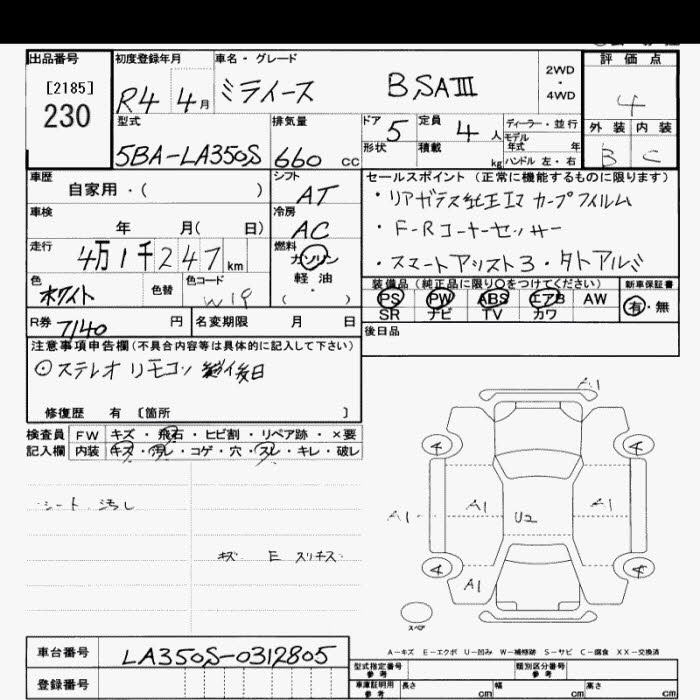 出品番号 初度登録年月 車名・グレード 評価点
[2185]
230
R4 4月 ミライース B,SAⅢ 2WD・4WD 4
型式 排気量 ドア 5 定員 4人 ディーラー・並行 外装 内装
モデル年式 年
5BA-LA350S 660cc 形状 積載 kg ハンドル 左・右 B C
車歴 シフト セールスポイント(正常に機能するものに限ります)
自家用・( ) AT
車検 冷房
年 月( 日) AC ・F-Rコーナーセンサー
走行 燃料
4万1千247km ガソリン ・スマートアシスト3・
軽油
( )
色 色替 色コード
ホワイト W19
装備品(純正品に限り〇をつけてください) 新車保証書
PS PW ABS エアB AW 有・無
SR ナビ TV カワ
R券 7140円 名変期限 月 日
後日品
注意事項申告欄(不具合内容等は具体的に記入して下さい)
⊙ステレオ リモコン 後日
修復歴 有 〔箇所 〕
検査員 FW キズ・飛石・ヒビ割・リペア跡・×要
記入欄 内装 キズ・汚レ・コゲ・穴・スレ・キレ・破レ
A1
4 4
シート 汚し
A1 A1 U2 A1
キズ E スリキズ
4 4
A1
スペア
A-キズ E-エクボ U-凹み W-補修跡 S-サビ C-腐食 XX-交換済
車台番号 LA350S-0312805
型式指定番号 参考 類別区分番号 参考
登録番号
車庫証明用 参考 長さ cm 幅 cm 高さ cm